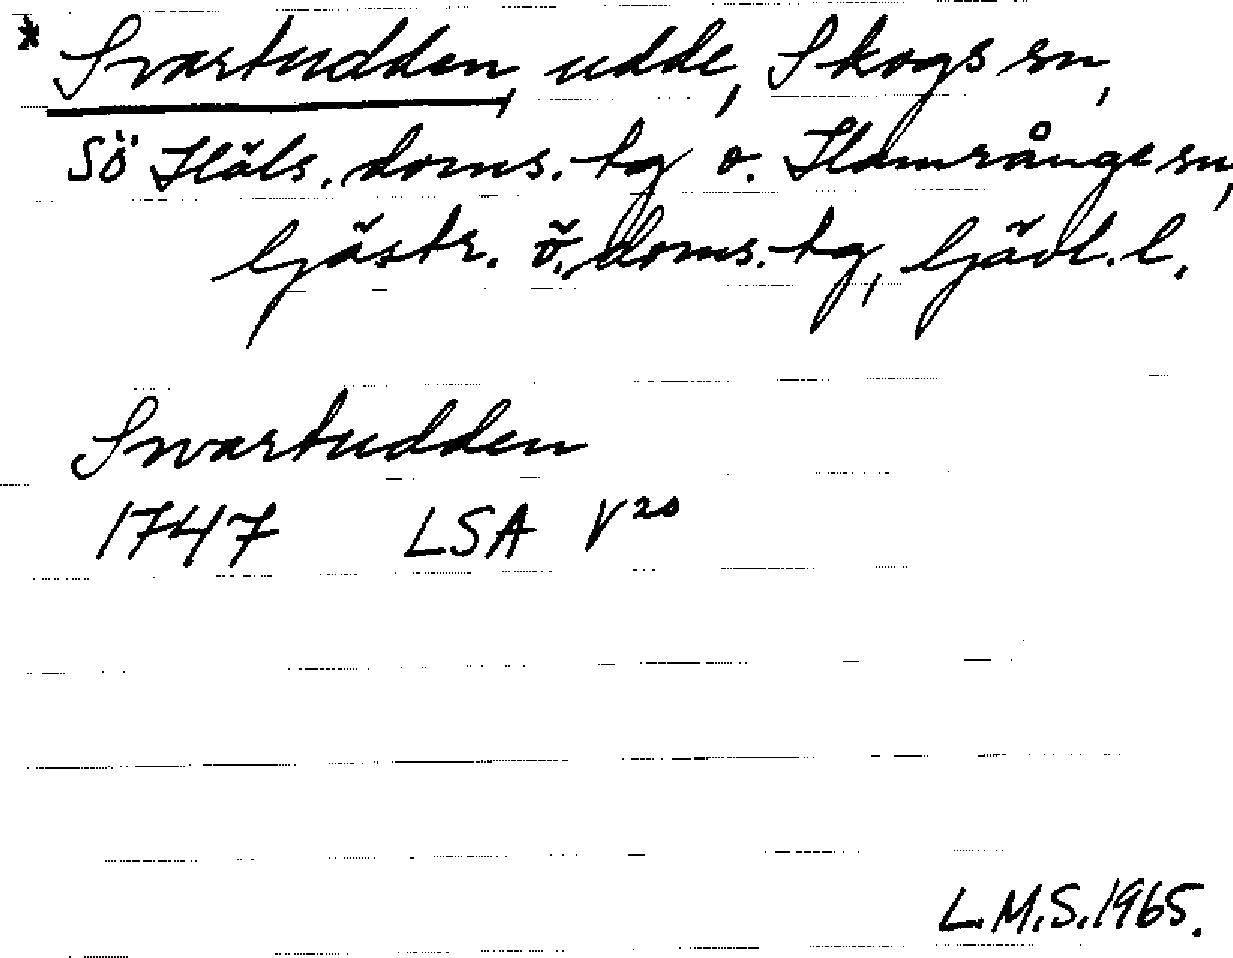 * Svartudden, udde, Skogs sn,
Sö Häls. doms.-tg o. Hamrånge sn,
Gästr. ö. doms.-tg, Gävl. l.
Svartudden
1747 LSA V²⁰
L.M.S. 1965.